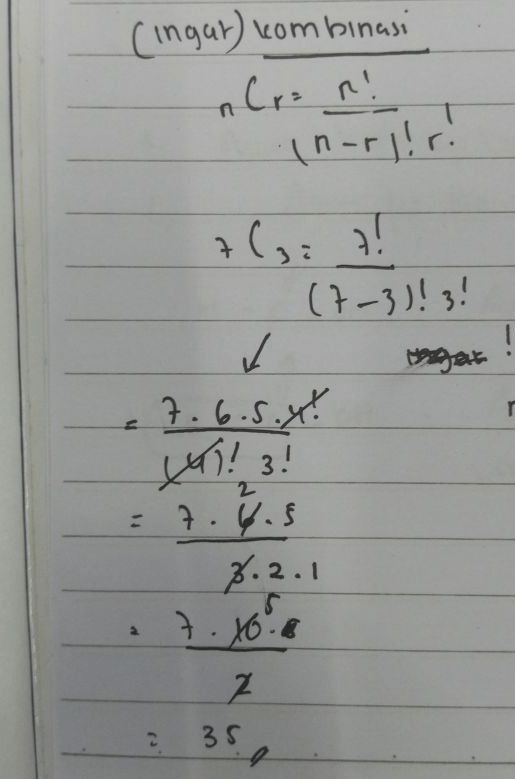 (ingat) kombinasi
nCr = n!
(n-r)! r!
7C3 = 7!
(7-3)! 3!
!
= 7.6.5.4!
(4)! 3!
2
= 7.6.5
3.2.1
5
= 7.10.
2
= 35